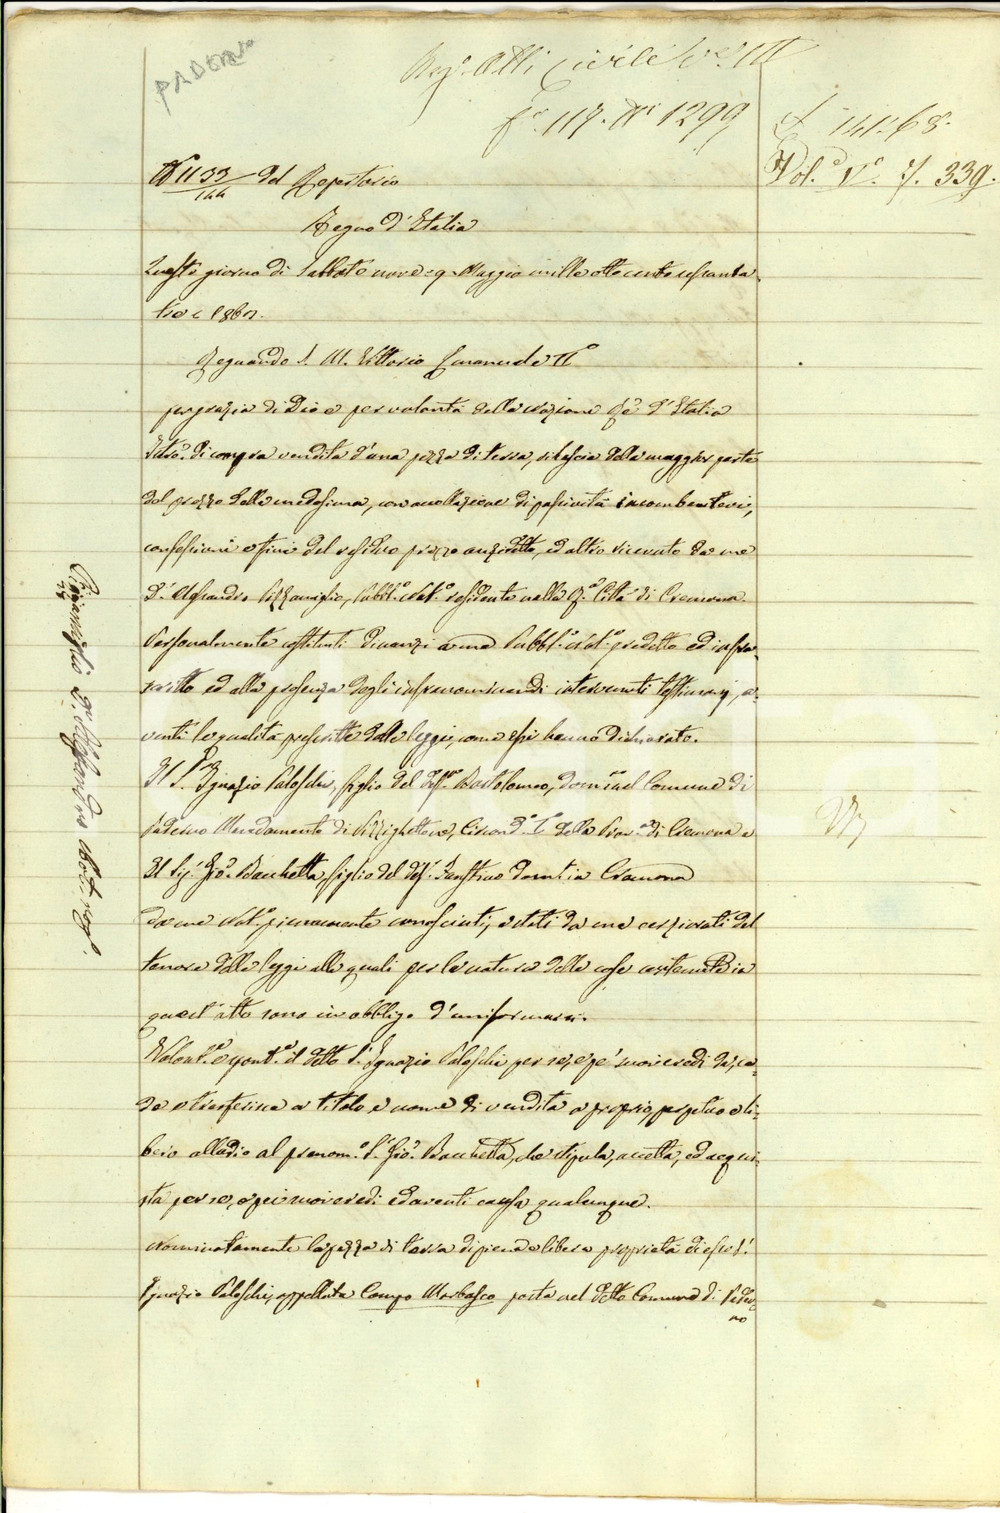 PADERNO
Reg. Atti Civile Vol. III
f.° 117. N.° 1299
£ 141.68.
Vol.° V.° f. 339.
N° 1133/144 del Repertorio
Regno d'Italia
Questo giorno di Sabbato nove = 9 Maggio mille otto cento sessanta
tre = 1863.
Regnando S. M. Vittorio Emanuele II°
per grazia di Dio e per volontà della nazione Re d'Italia
Istro. di compra vendita d'una pezza di terra, rilascio della maggior parte
del prezzo della medesima, con accollazione di passività incombentevi,
confessioni e fini del residuo prezzo anzidetto, ed altro ricevuto da me
D.r Alessandro Pizzamiglio, Pubbl.° Not.° residente nella R.a Città di Cremona.
Personalmente costituiti dinanzi a me Pubbl.° Not.° predetto ed infra-
scritto ed alla presenza degli infranominandi intervenuti testimonj, a-
venti le qualità prescritte dalle leggi, come essi hanno dichiarato.
Il S.r Ignazio Paloschi, figlio del def.to Bartolomeo, dom.to nel Comune di
Paderno Mandamento di Pizzighettone, Circond.° I.° della Prov.a di Cremona e
Il Sig.r Gio. Bacchetta, figlio del def.t Faustino dom.t in Cremona
da me Not.° pienamente conosciuti, e stati da me cerziorati del
tenore delle leggi alle quali per la natura delle cose contenute in
quest'atto sono in obbligo d'uniformarsi.
Volont.e e spont.e il detto S.r Ignazio Paloschi per se, e pe' suoi eredi dà, ce-
de e trasferisce a titolo e nome di vendita a proprio, perpetuo e li-
bero allodio al prenom.° S.r Gio. Bacchetta, che stipula, accetta, ed acqui-
sta per se, e pei suoi eredi ed aventi causa qualunque.
Nominatamente la pezza di terra di piena e libera proprietà di esso S.r
Ignazio Paloschi, appellata Campo Marbasco posta nel detto Comune di Pader-
no
Pizzamiglio D.r Alessandro Not. rog.°